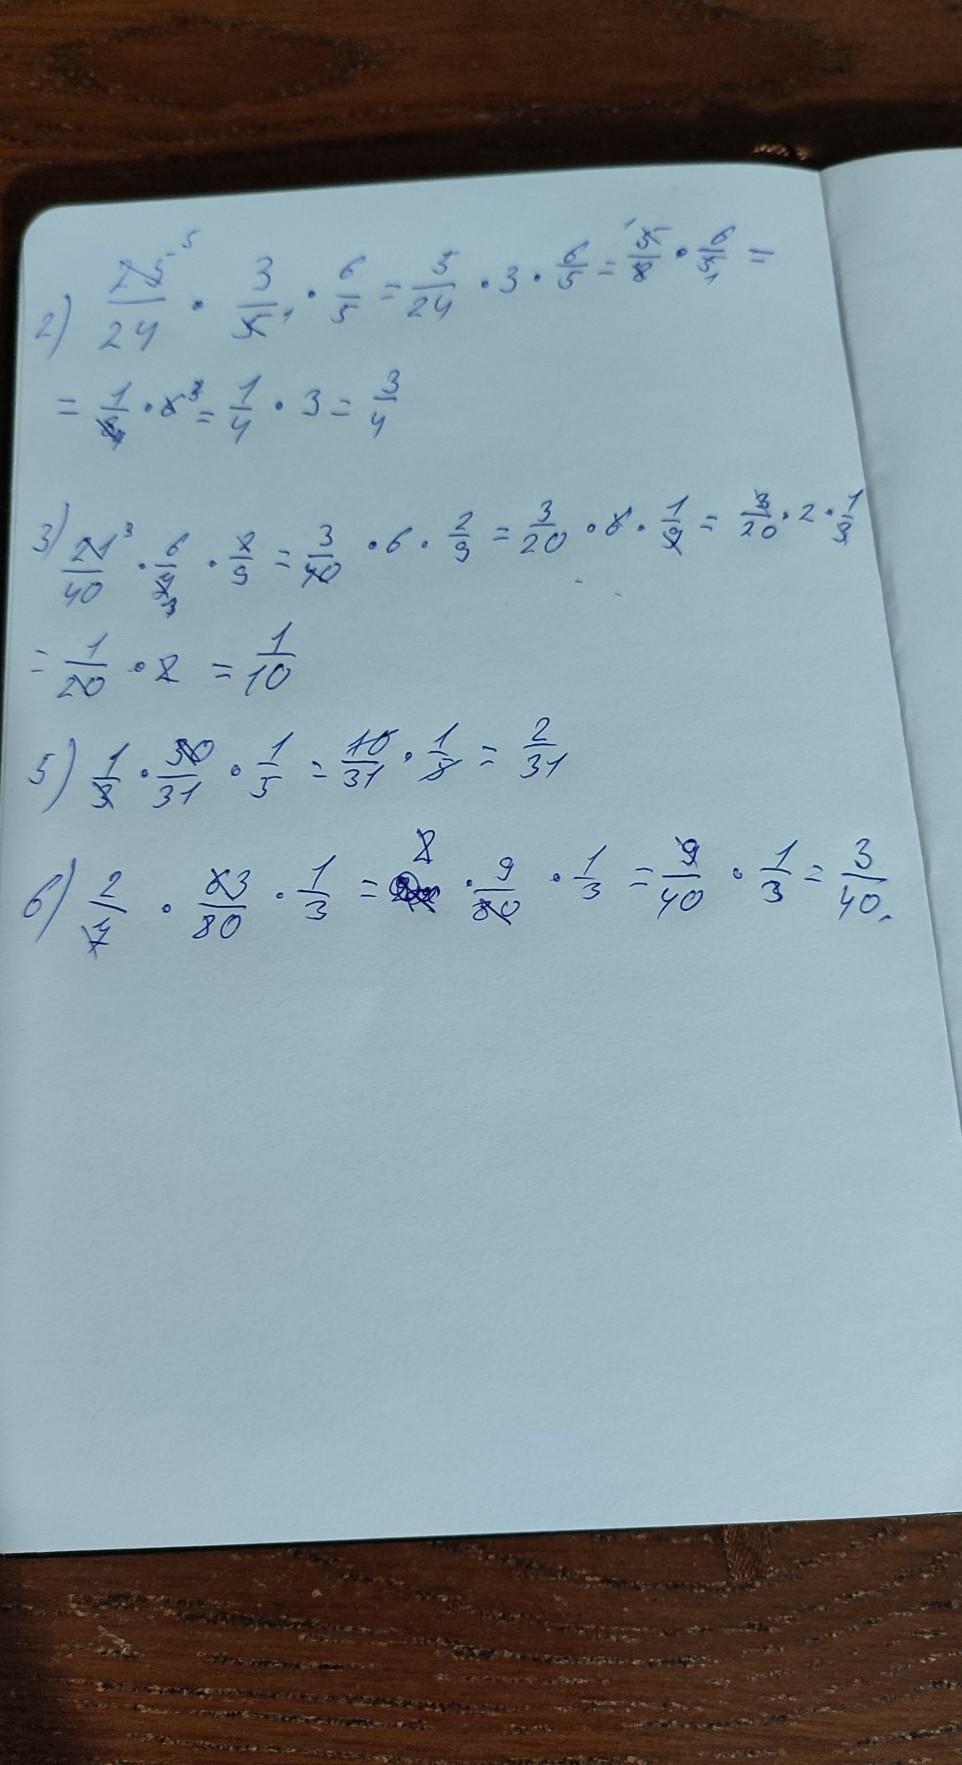 2) 25⁵/24 · 3/5₁ · 6/5 = 5/24 · 3 · 6/5 = ¹5/8 · 6/5₁ =
= 1/8₄ · 6³ = 1/4 · 3 = 3/4
3) 21³/40 · 6/ · 2/9 = 3/40 · 6 · 2/9 = 3/20 · 6 · 1/9 = 3/20 · 2 · 1/3
= 1/20 · 2 = 1/10
5) 1/3 · 30/31 · 1/5 = 10/31 · 1/5 = 2/31
6) 2/7 · 63/80 · 1/3 = 2 · 9/80 · 1/3 = 9/40 · 1/3 = 3/40.